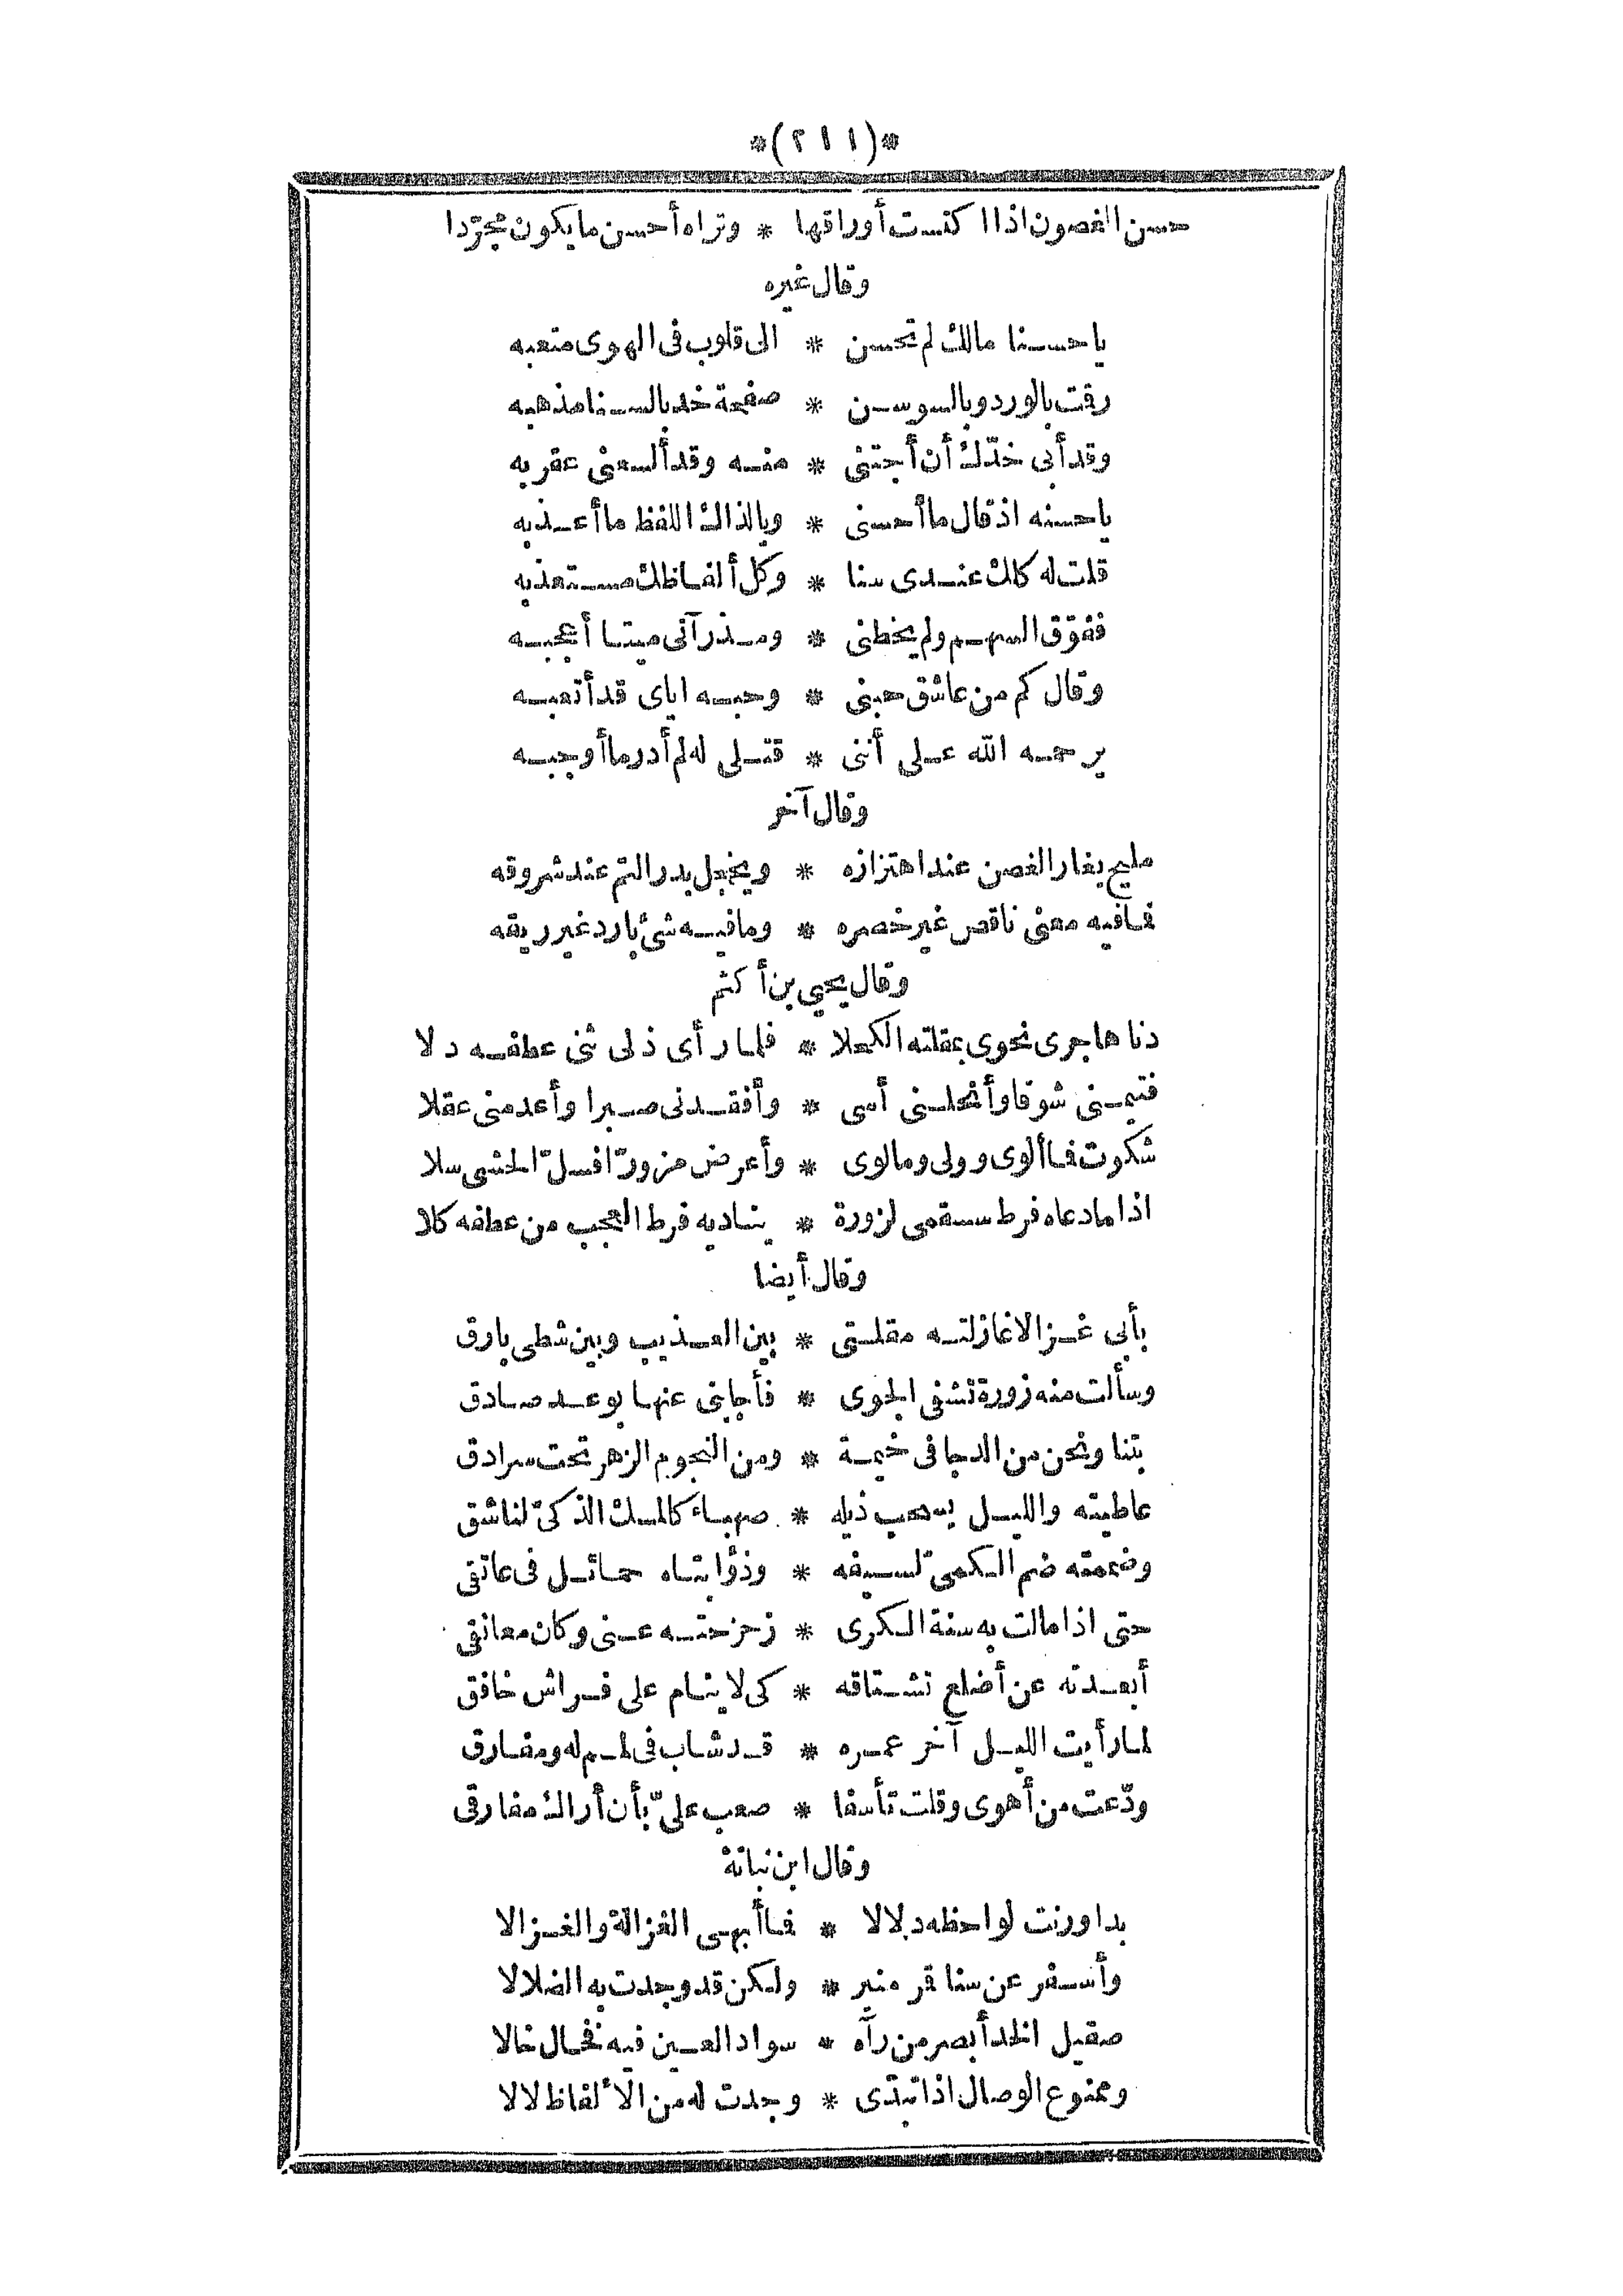 *(٢١١)*
حسن الغصون اذا اكتست أوراقها * وتراه أحسن ما يكون مجرّدا
وقال غيره
يا حسنا مالك لم تحسن * الى قلوب فى الهوى متعبه
رقت بالورد وبالسوسن * صفحة خد بالسنا مذهبه
وقد أبى خدّك أن أجتنى * منه وقد ألسعنى عقربه
يا حسنه اذ قال ما أحسنى * ويا لذاك اللفظ ما أعذبه
قلت له كلك عندى سنا * وكل ألفاظك مستعذبه
ففوّق السهم ولم يخطنى * ومذ رآنى ميتا أعجبه
وقال كم من عاشق حبنى * وحبه اياى قد أتعبه
يرحمه الله على أننى * قتلى له لم أدر ما أوجبه
وقال آخر
مليح يغار الغصن عند اهتزازه * ويخجل بدر التم عند شروقه
فما فيه معنى ناقص غير خصره * وما فيه شئ بارد غير ريقه
وقال يحيى بن أكثم
دنا هاجرى نحوى بمقلته الكحلا * فلما رأى ذلى ثنى عطفه دلا
فتيمنى شوقا وأنحلنى أسى * وأفقدنى صبرا وأعدمنى عقلا
شكوت فما ألوى وولى وما لوى * وأعرض مزورّا فسلّ الحشى سلا
اذا ما دعاه فرط سقمى لزورة * يناديه فرط العجب من عطفه كلا
وقال أيضا
بأبى غزالا غازلته مقلتى * بين العذيب وبين شطى بارق
وسألت منه زورة تشفى الجوى * فأجابنى عنها بوعد صادق
بتنا ونحن من الدجا فى خيمة * ومن النجوم الزهر تحت سرادق
عاطيته والليل يسحب ذيله * صهباء كالمسك الذكىّ لناشق
وضممته ضم الكمىّ لسيفه * وذؤابتاه حمائل فى عاتقى
حتى اذا مالت به سنة الكرى * زحزحته عنى وكان معانقى
أبعدته عن أضلع تشتاقه * كى لا ينام على فراش خافق
لما رأيت الليل آخر عمره * قد شاب فى لمم له ومفارق
ودّعت من أهوى وقلت تأسفا * صعب علىّ بأن أراك مفارقى
وقال ابن نباتة
بدا ورنت لواحظه دلالا * فما أبهى الغزالة والغزالا
وأسفر عن سنا قمر منير * ولكن قد وجدت به الضلالا
صقيل الخد أبصر من رآه * سواد العين فيه فخال خالا
وممنوع الوصال اذا تبدّى * وجدت له من الألفاظ لالا